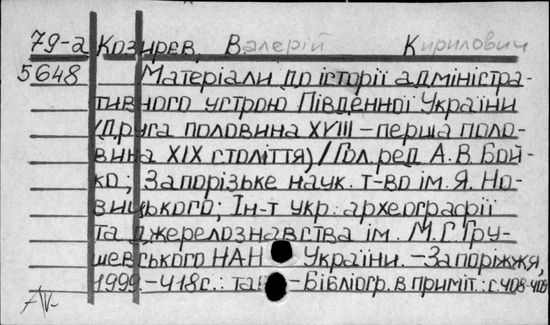 79-а Козирєв. Валерій Кирилович
5648 Матеріали до історії адміністра-
тивного устрою Південної України
(Друга половина XVIII – перша поло-
вина XIX століття) / Гол. ред. А. В. Бой-
ко; Запорізьке наук. т-во ім. Я. Но-
вицького; Ін-т укр. археографії
та джерелознавства ім. М. Г. Гру-
шевського НАН України. – Запоріжжя,
1999. – 418 с.: табл. – Бібліогр. в приміт.: с. 408-409